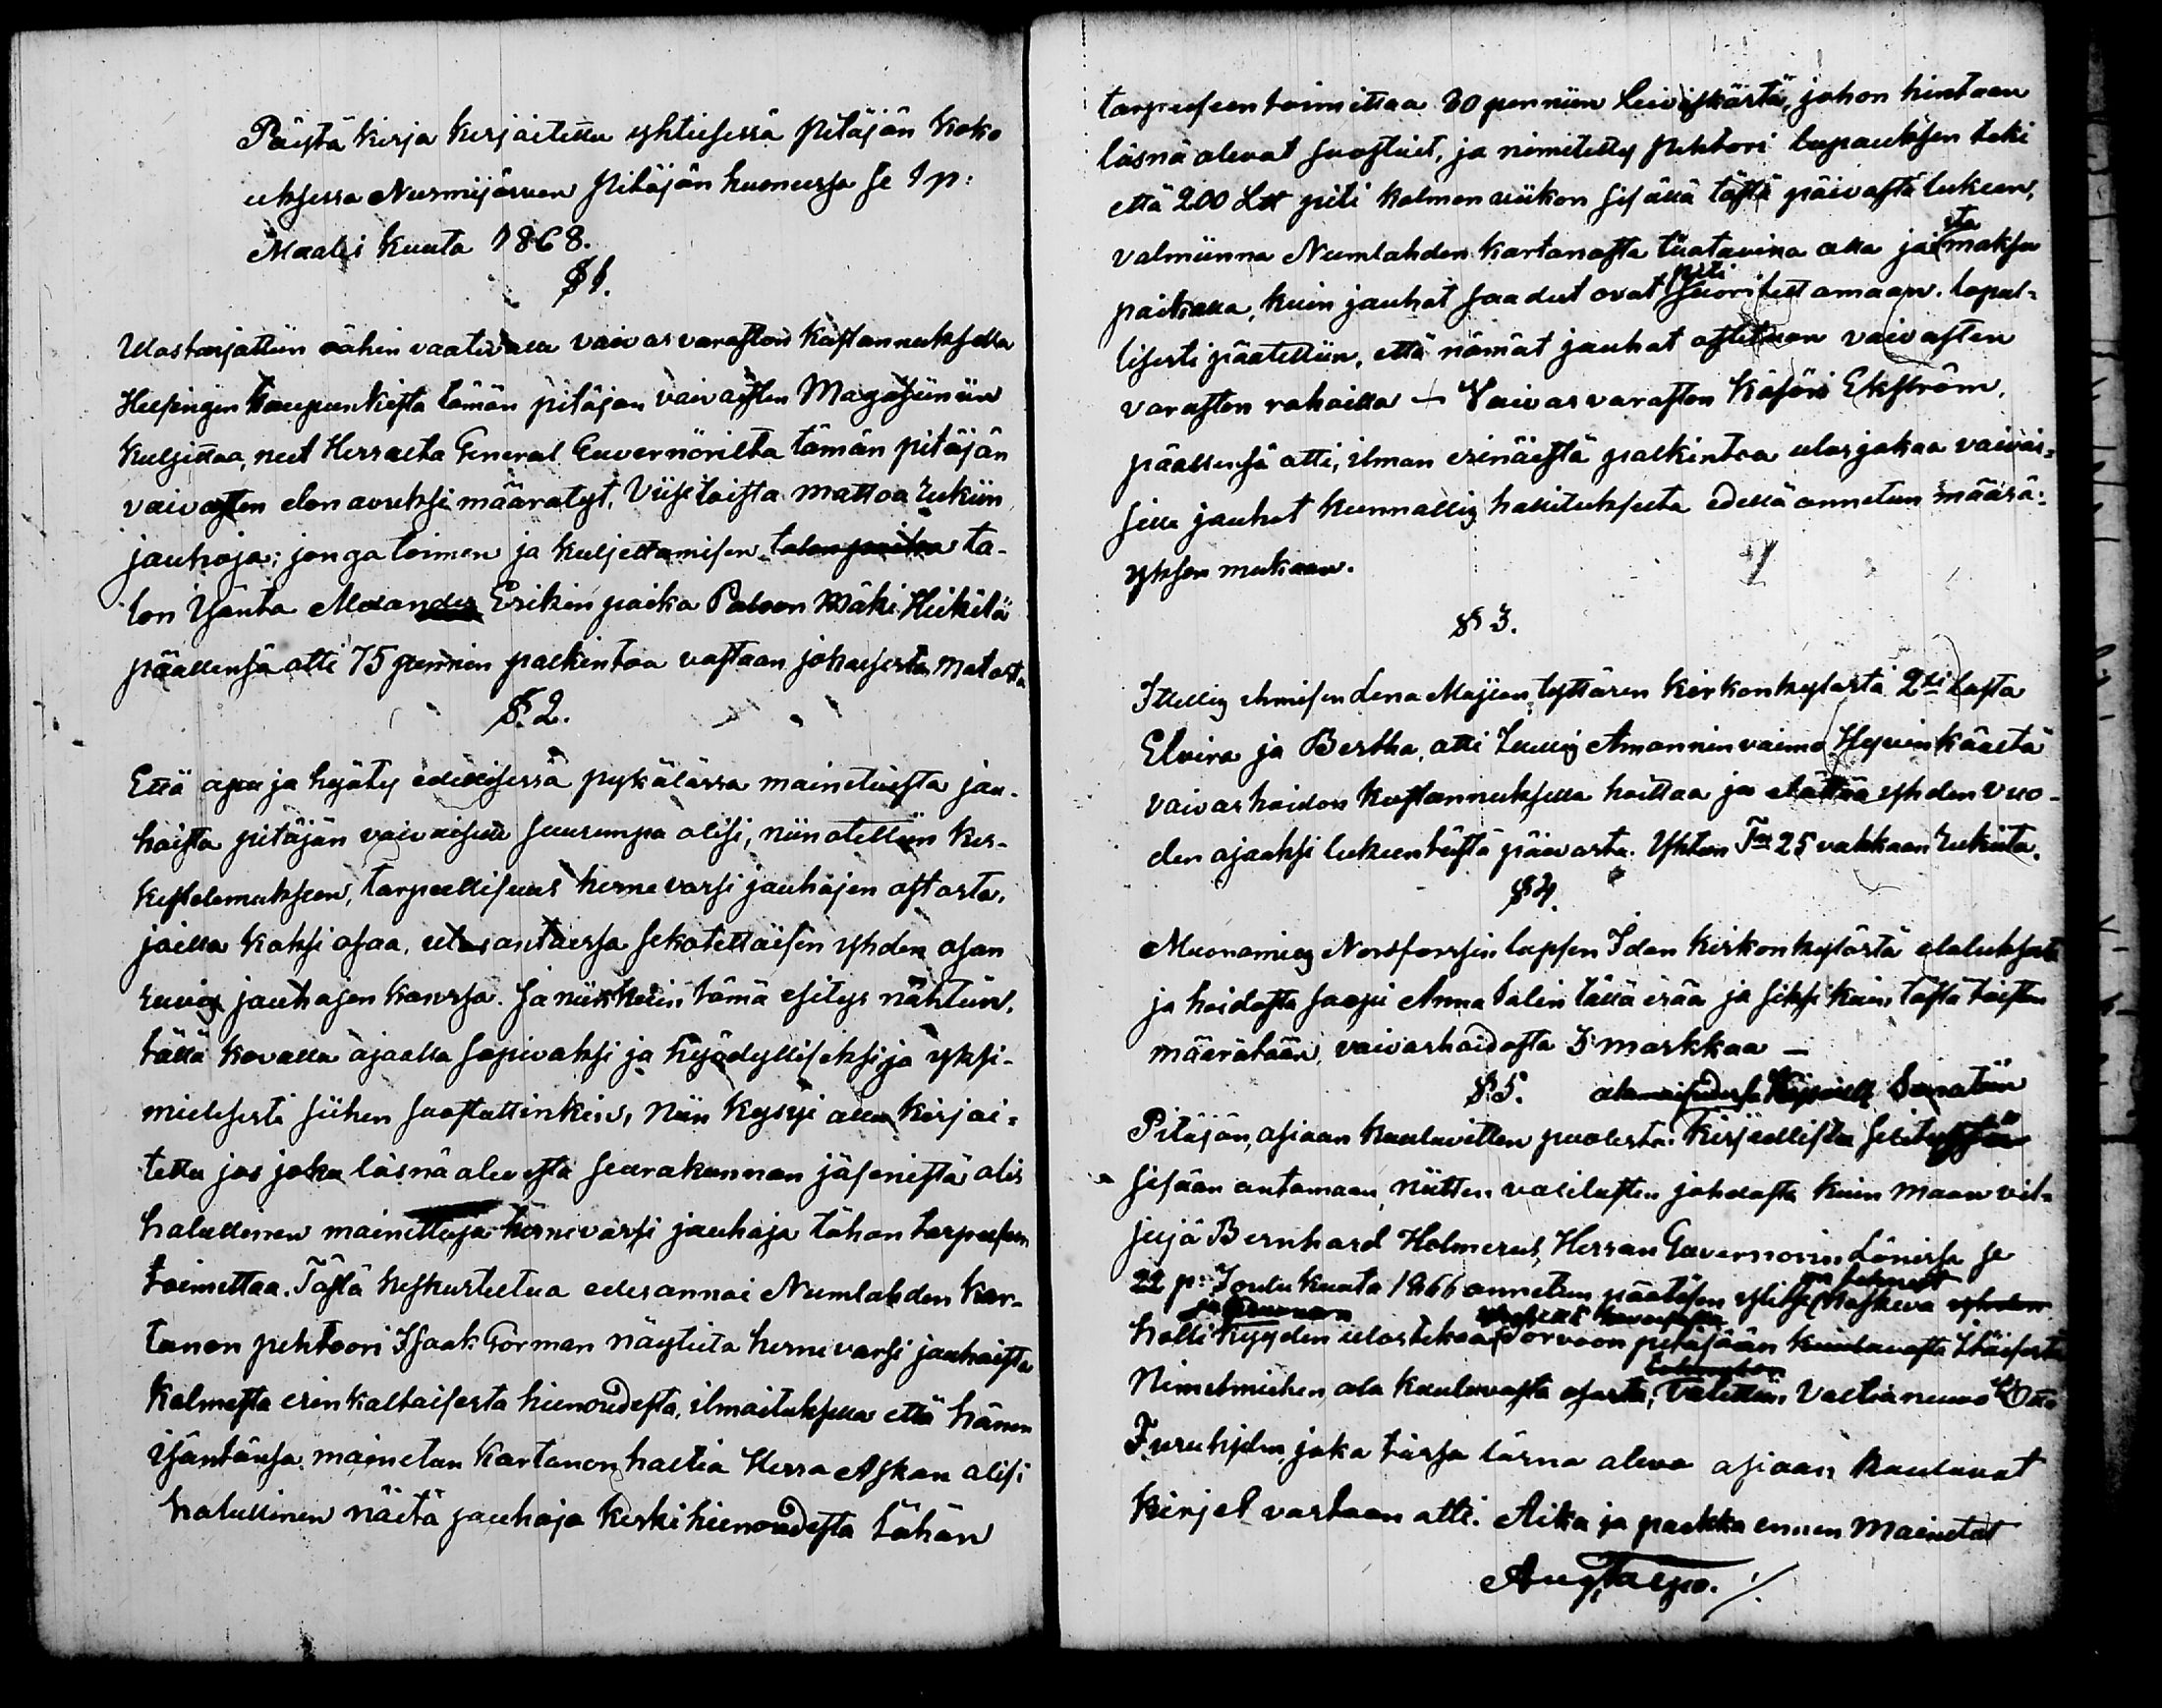 Päystä kirja kirjoitettu yhteisessä pitäjän koko
uksessa Nurmijärven Pitäjän huoneessa se 1 p:
Maalis kuuta 1868.
§ 1.
Ulostarjottiin vähin vaativalle vaivasvaraston kostannuksella
Helsingin kaupunkista tämän pitäjän vaivasten Magasiiniin
kuljettaa, neet Herralta General Guvernörilta tämän pitäjän
vaivasten elon avuksi määrätyt, Viisitoista mattoa rukiin
jauhoja; jonga toimen ja kuljettamisen talonpoika ta-
lon Isäntä Erikin poika Paloon Mäki Heikilä
päällensä otti 75 pennien palkintoa vastaan johasesta matosta
§. 2.
Että apu ja hyöty edellisessä pykälässä mainetuista jau-
hoista pitäjän vaivaisille suurempa olisi, niin otettiin kes-
kustelemukseen, tarpeellisuus hernevarsi jauhojen ostosta,
joilla kaksi osaa, ulosantaessa sekotettaisen yhden osan
ruvis jauhojen kanssa. Ja niinkuin tämä esitys nähtiin,
tällä kovalla ajaalla sopivaksi ja hyödylliseksi ja yksi-
mielisesti siihen suostuttinkin, Niin kysyi alla kirjoi-
tettu jos joku läsnä olevista seurakunnan jäsenistä olis
halullinen mainittuja hernevarsi jauhoja tähän tarpeesen
toimittaa. Tästä keskusteltua edesannoi Numlahden Kar-
tanon pehtoori Isaak Gorman näyteitä hernevarsi jauhoista
kolmesta erinkaltaisesta hienoudesta, ilmoituksella että hänen
isäntänsä mainetun Kartanon haltia Herra Askan olisi
halullinen näitä jauhoja keski hienoudesta tähän
tarpeeseen toimittaa 80 penniin Leiviskästä, johon hintaan
läsnä olevat suostuit, ja nimitetty Pehtori lupauksen teki
että 200 L℔ piti kolmen viikon sisällä tästä päivästä lukein,
valmiinna Numlahden kartanosta tuotavina olla ja sta maksu
paikalla, kuin jauhot saadut ovat piti suoritettamaan. lopul-
lisesti päätettiin, että nämät jauhot ostetaan vaivasten
varasten rahoilla — Vaivasvaraston Kasöri Ekström,
päällensä otti, ilman erinäistä palkintoa ulosjakaa vaivai-
sille jauhot kunnallis hallitukselta edellä annetun määrä-
yksen mukaan.
§ 3.
Itellis ihmisen Lena Majian tyttären Kirkonkylästä 2:si lasta
Elvira ja Bertha, otti Amonnin vaimo Hyvinkäältä
vaivashoidon kustannuksella hoittaa ja elättää yhden vuo-
den ajaaksi lukeentästä päivästä. Yhten 25 vakkaan rukiita.
§ 4.
Muonamies Norsforssin lapsen Idan kirkonkylästä elatuksesta
ja hoidosta saapi Anna Salin tällä erää ja siksi kuin tästä toisten
määrätään, vaivashoidosta 5 markkaa —
§. 5. alamaisudessa Senatiin
Pitäjän, asiaan kuuluvitten puolesta kirjaellista selitystä
sisään antamaan, niitten valituften johdosta kuin maan vil-
jejä Bernhard Holmerus, Herran Guvernorin Länissä se
22 p: Joulu kuuta 1866 annetun päätöksen ylitse koskeva
holli kyyden ulostekoa Sorvoon pitäjään kuuluvasta Itäisestä
Nimelmiehen ala kuuluvasta osasta, valittiin Valtianeuvo
Furuhjelm, joka tässä läsna oleva asiaan kuuluvat
kirjet vastaan otti. Aika ja paikka ennen mainetut
Aug Taipo. ./.